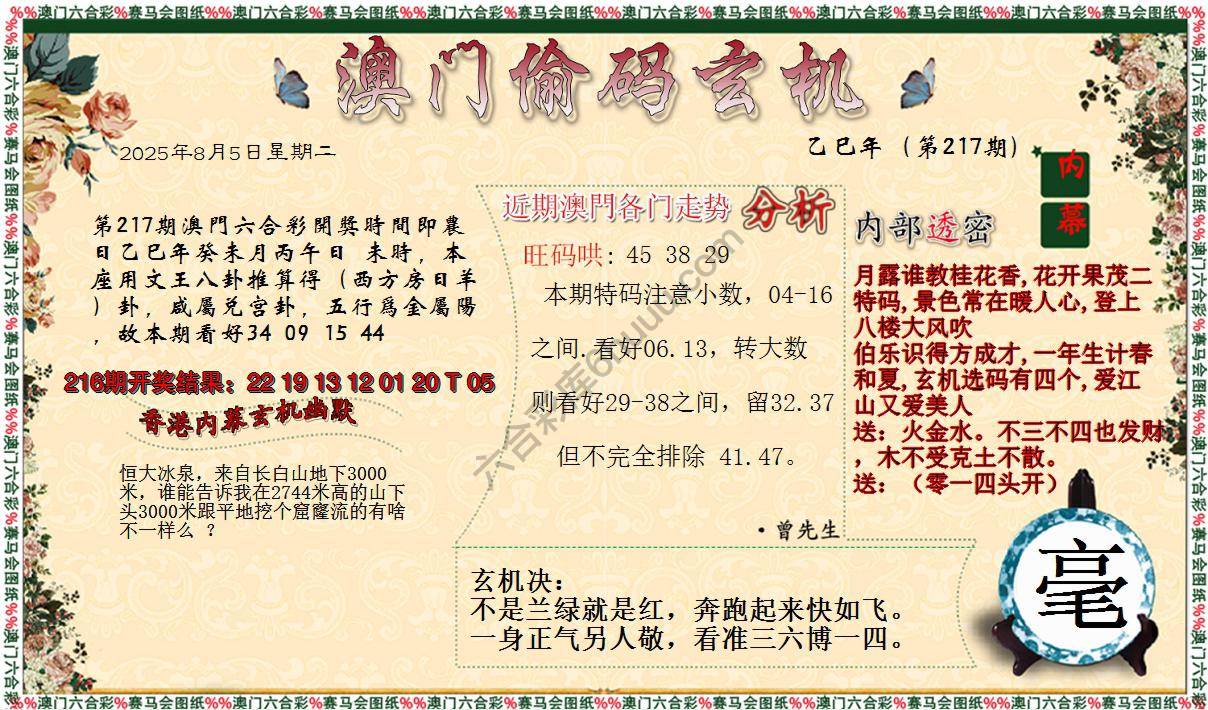 %%澳门六合彩%赛马会图纸%%澳门六合彩%赛马会图纸%%澳门六合彩%赛马会图纸%%澳门六合彩%赛马会图纸%%澳门六合彩%赛马会图纸%%澳门六合彩%赛马会图纸%%
澳门偷码玄机
2025年8月5日星期二
乙巳年（第217期）
内幕
第217期澳門六合彩開獎時間即農
日乙巳年癸未月丙午日 未時，本
座用文王八卦推算得（西方房日羊
）卦，咸屬兑宫卦，五行爲金屬陽
，故本期看好34 09 15 44
216期开奖结果：22 19 13 12 01 20 T 05
香港内幕玄机幽默
恒大冰泉，来自长白山地下3000
米，谁能告诉我在2744米高的山下
头3000米跟平地挖个窟窿流的有啥
不一样么 ？
近期澳門各门走势 分析
旺码哄: 45 38 29
本期特码注意小数，04-16
之间.看好06.13，转大数
则看好29-38之间，留32.37
但不完全排除 41.47。
·曾先生
内部透密
月露谁教桂花香,花开果茂二
特码,景色常在暖人心,登上
八楼大风吹
伯乐识得方成才,一年生计春
和夏,玄机选码有四个,爱江
山又爱美人
送：火金水。不三不四也发财
，木不受克土不散。
送：（零一四头开）
玄机决：
不是兰绿就是红，奔跑起来快如飞。
一身正气另人敬，看准三六博一四。
毫
%%澳门六合彩%赛马会图纸%%澳门六合彩%赛马会图纸%%澳门六合彩%赛马会图纸%%澳门六合彩%赛马会图纸%%澳门六合彩%赛马会图纸%%澳门六合彩%赛马会图纸%%